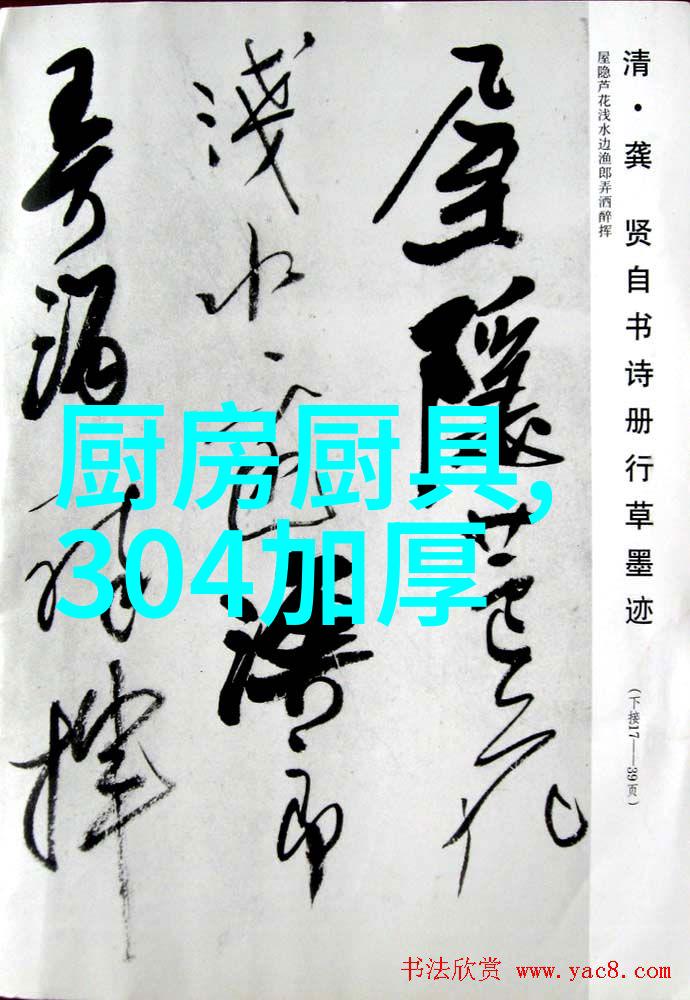 清·龚 贤自书诗册行草墨迹
(下接17——39页)
屋隐芦花浅水边渔郎弄酒醉挥
屋隐芦花
浅水边渔郎
弄酒醉挥
厨房厨具,
304加厚
书法欣赏 www.yac8.com